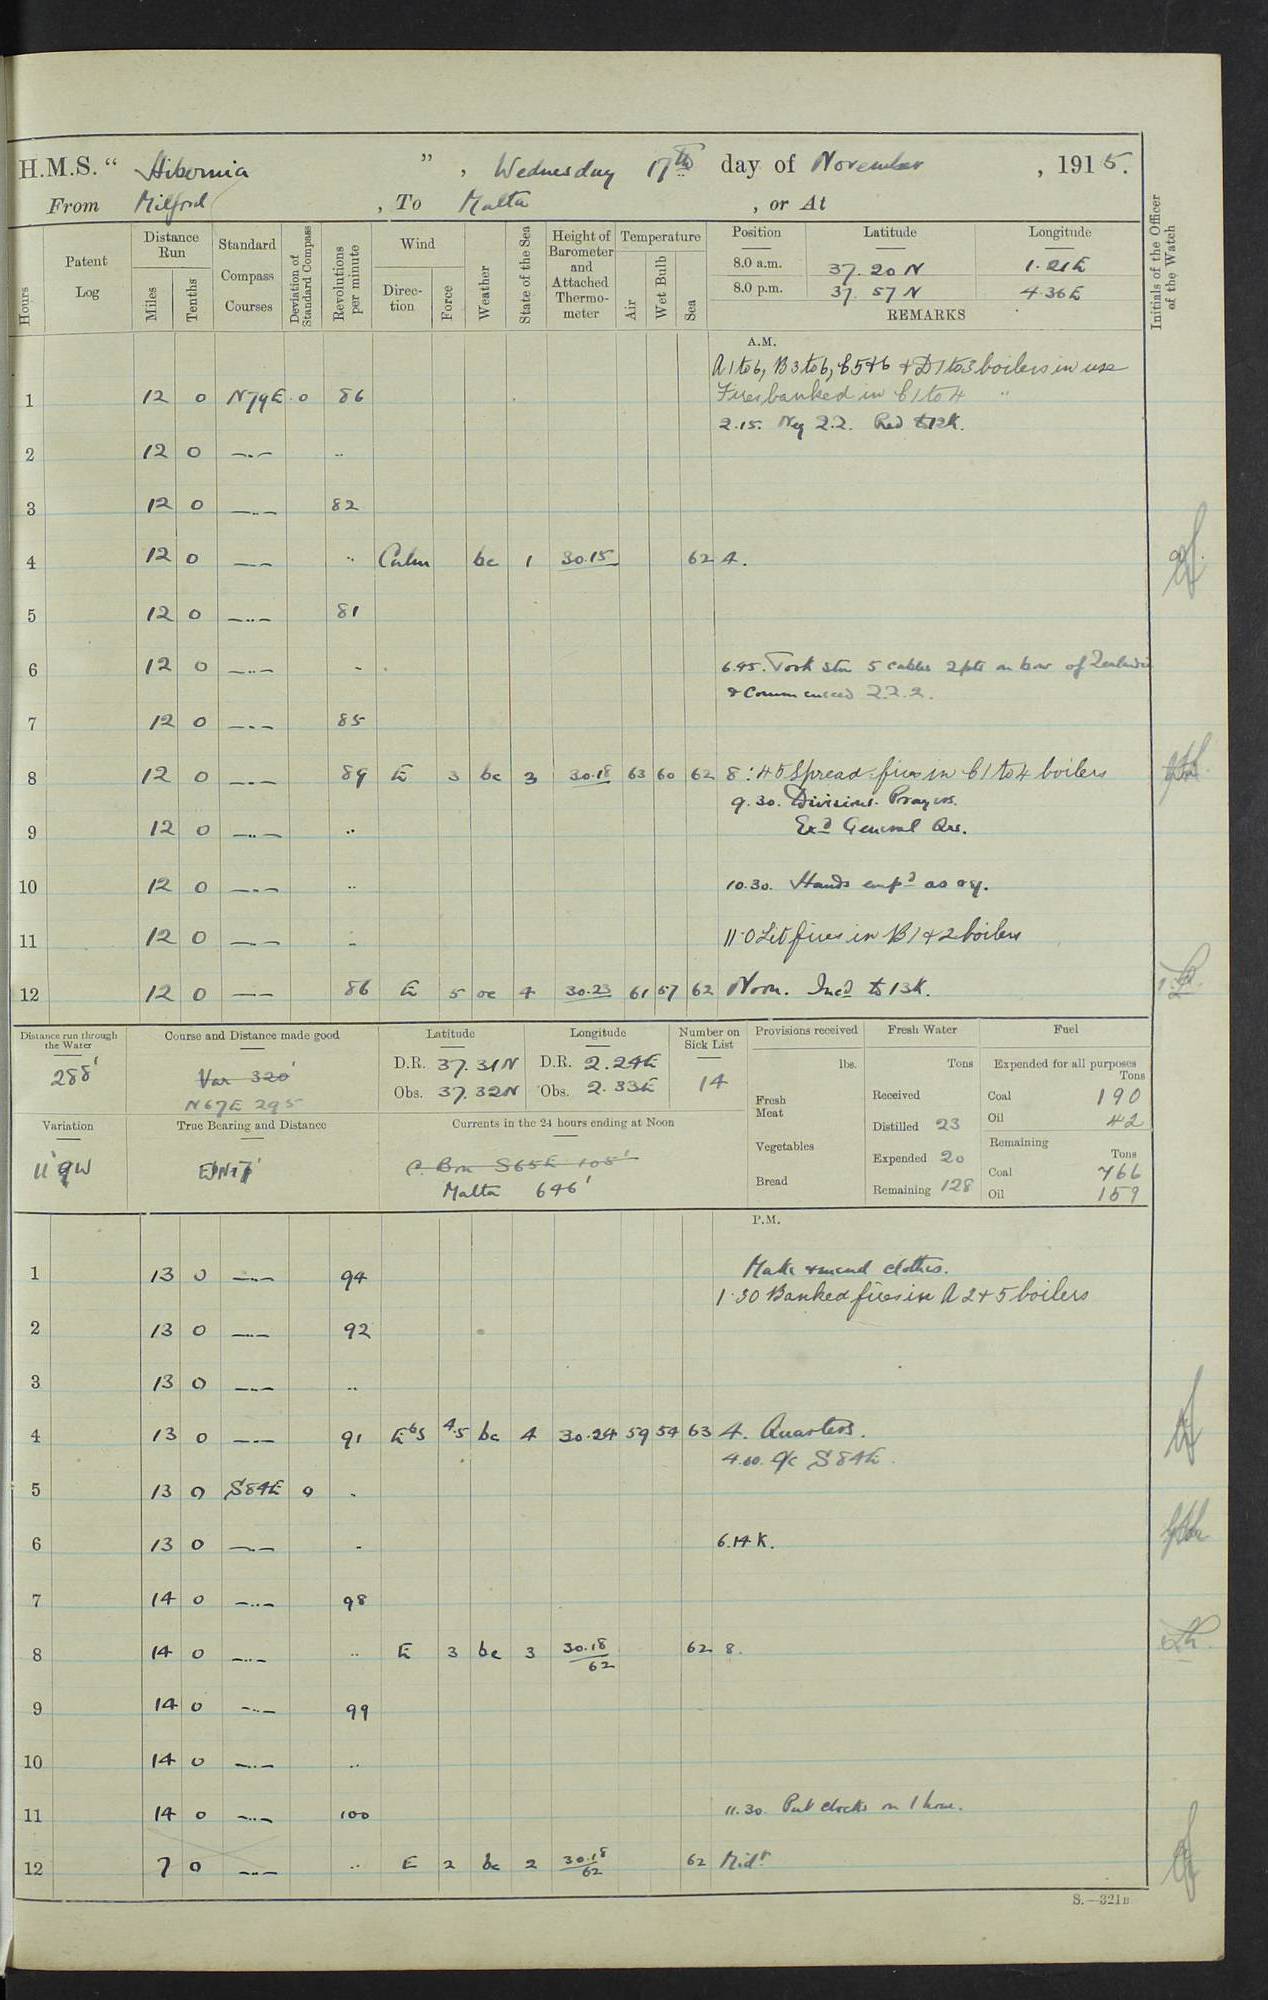 H.M.S. " Hibernia ", Wednesday 17th day of November, 1915.
From Milford, To Malta, or At
Hours
Patent Log
Distance Run
Miles
Tenths
Standard Compass Courses
Deviation of Standard Compass
Revolutions per minute
Wind
Direction
Force
Weather
State of the Sea
Height of Barometer and Attached Thermometer
Temperature
Air
Wet Bulb
Sea
Position Latitude Longitude
8.0 a.m. 37.20 N 1.21 E
8.0 p.m. 37.57 N 4.36 E
REMARKS
Initials of the Officer of the Watch
A.M.
A 1 to 6, B 3 to 6, C 5 & 6 & D 1 to 3 boilers in use
Fires banked in C 1 to 4 "
1 12 0 N79E 0 86
2.15. Neg 2.2. Red to 12K.
2 12 0 —..— ..
3 12 0 —..— 82
4 12 0 —..— .. Calm bc 1 30.15 62 4.
5 12 0 —..— 81
6 12 0 —..— .. 6.45. Took stn 5 cables 2 pts on bow of Zealandia
& Commenced 2.2.2.
7 12 0 —..— 85
8 12 0 —..— 89 E 3 bc 3 30.18 63 60 62 8:45 Spread fires in C 1 to 4 boilers
9.30. Divisions. Prayers.
9 12 0 —..— .. Exd General Qrs.
10 12 0 —..— .. 10.30. Hands empd as req.
11 12 0 —..— .. 11.0 Lit fires in B 1 & 2 boilers
12 12 0 —..— 86 E 5 oc 4 30.23 61 57 62 Noon. Incd to 13K.
Distance run through the Water
288'
Course and Distance made good
Var 320'
N67E 295
Latitude
D.R. 37.31N
Obs. 37.32N
Longitude
D.R. 2.24E
Obs. 2.33E
Number on Sick List
14
Variation
11°9W
True Bearing and Distance
Currents in the 24 hours ending at Noon
C. Bon S65E 108'
Malta 646'
Provisions received
lbs.
Fresh Meat
Vegetables
Bread
Fresh Water
Tons
Received
Distilled 23
Expended 20
Remaining 128
Fuel
Expended for all purposes
Tons
Coal 190
Oil 42
Remaining
Tons
Coal 766
Oil 159
P.M.
1 13 0 —..— 94 Make & mend clothes.
1.30 Banked fires in A 2 & 5 boilers
2 13 0 —..— 92
3 13 0 —..— ..
4 13 0 —..— 91 EbS 4.5 bc 4 30.24 59 54 63 4. Quarters.
4.00. A/c S84E.
5 13 0 S84E 0 ..
6 13 0 —..— .. 6.14K.
7 14 0 —..— 98
8 14 0 —..— .. E 3 bc 3 30.18/62 62 8.
9 14 0 —..— 99
10 14 0 —..— ..
11 14 0 —..— 100 11.30. Put clocks on 1 hour.
12 7 0 —..— .. E 2 bc 2 30.18/62 62 Midt
S.—321B